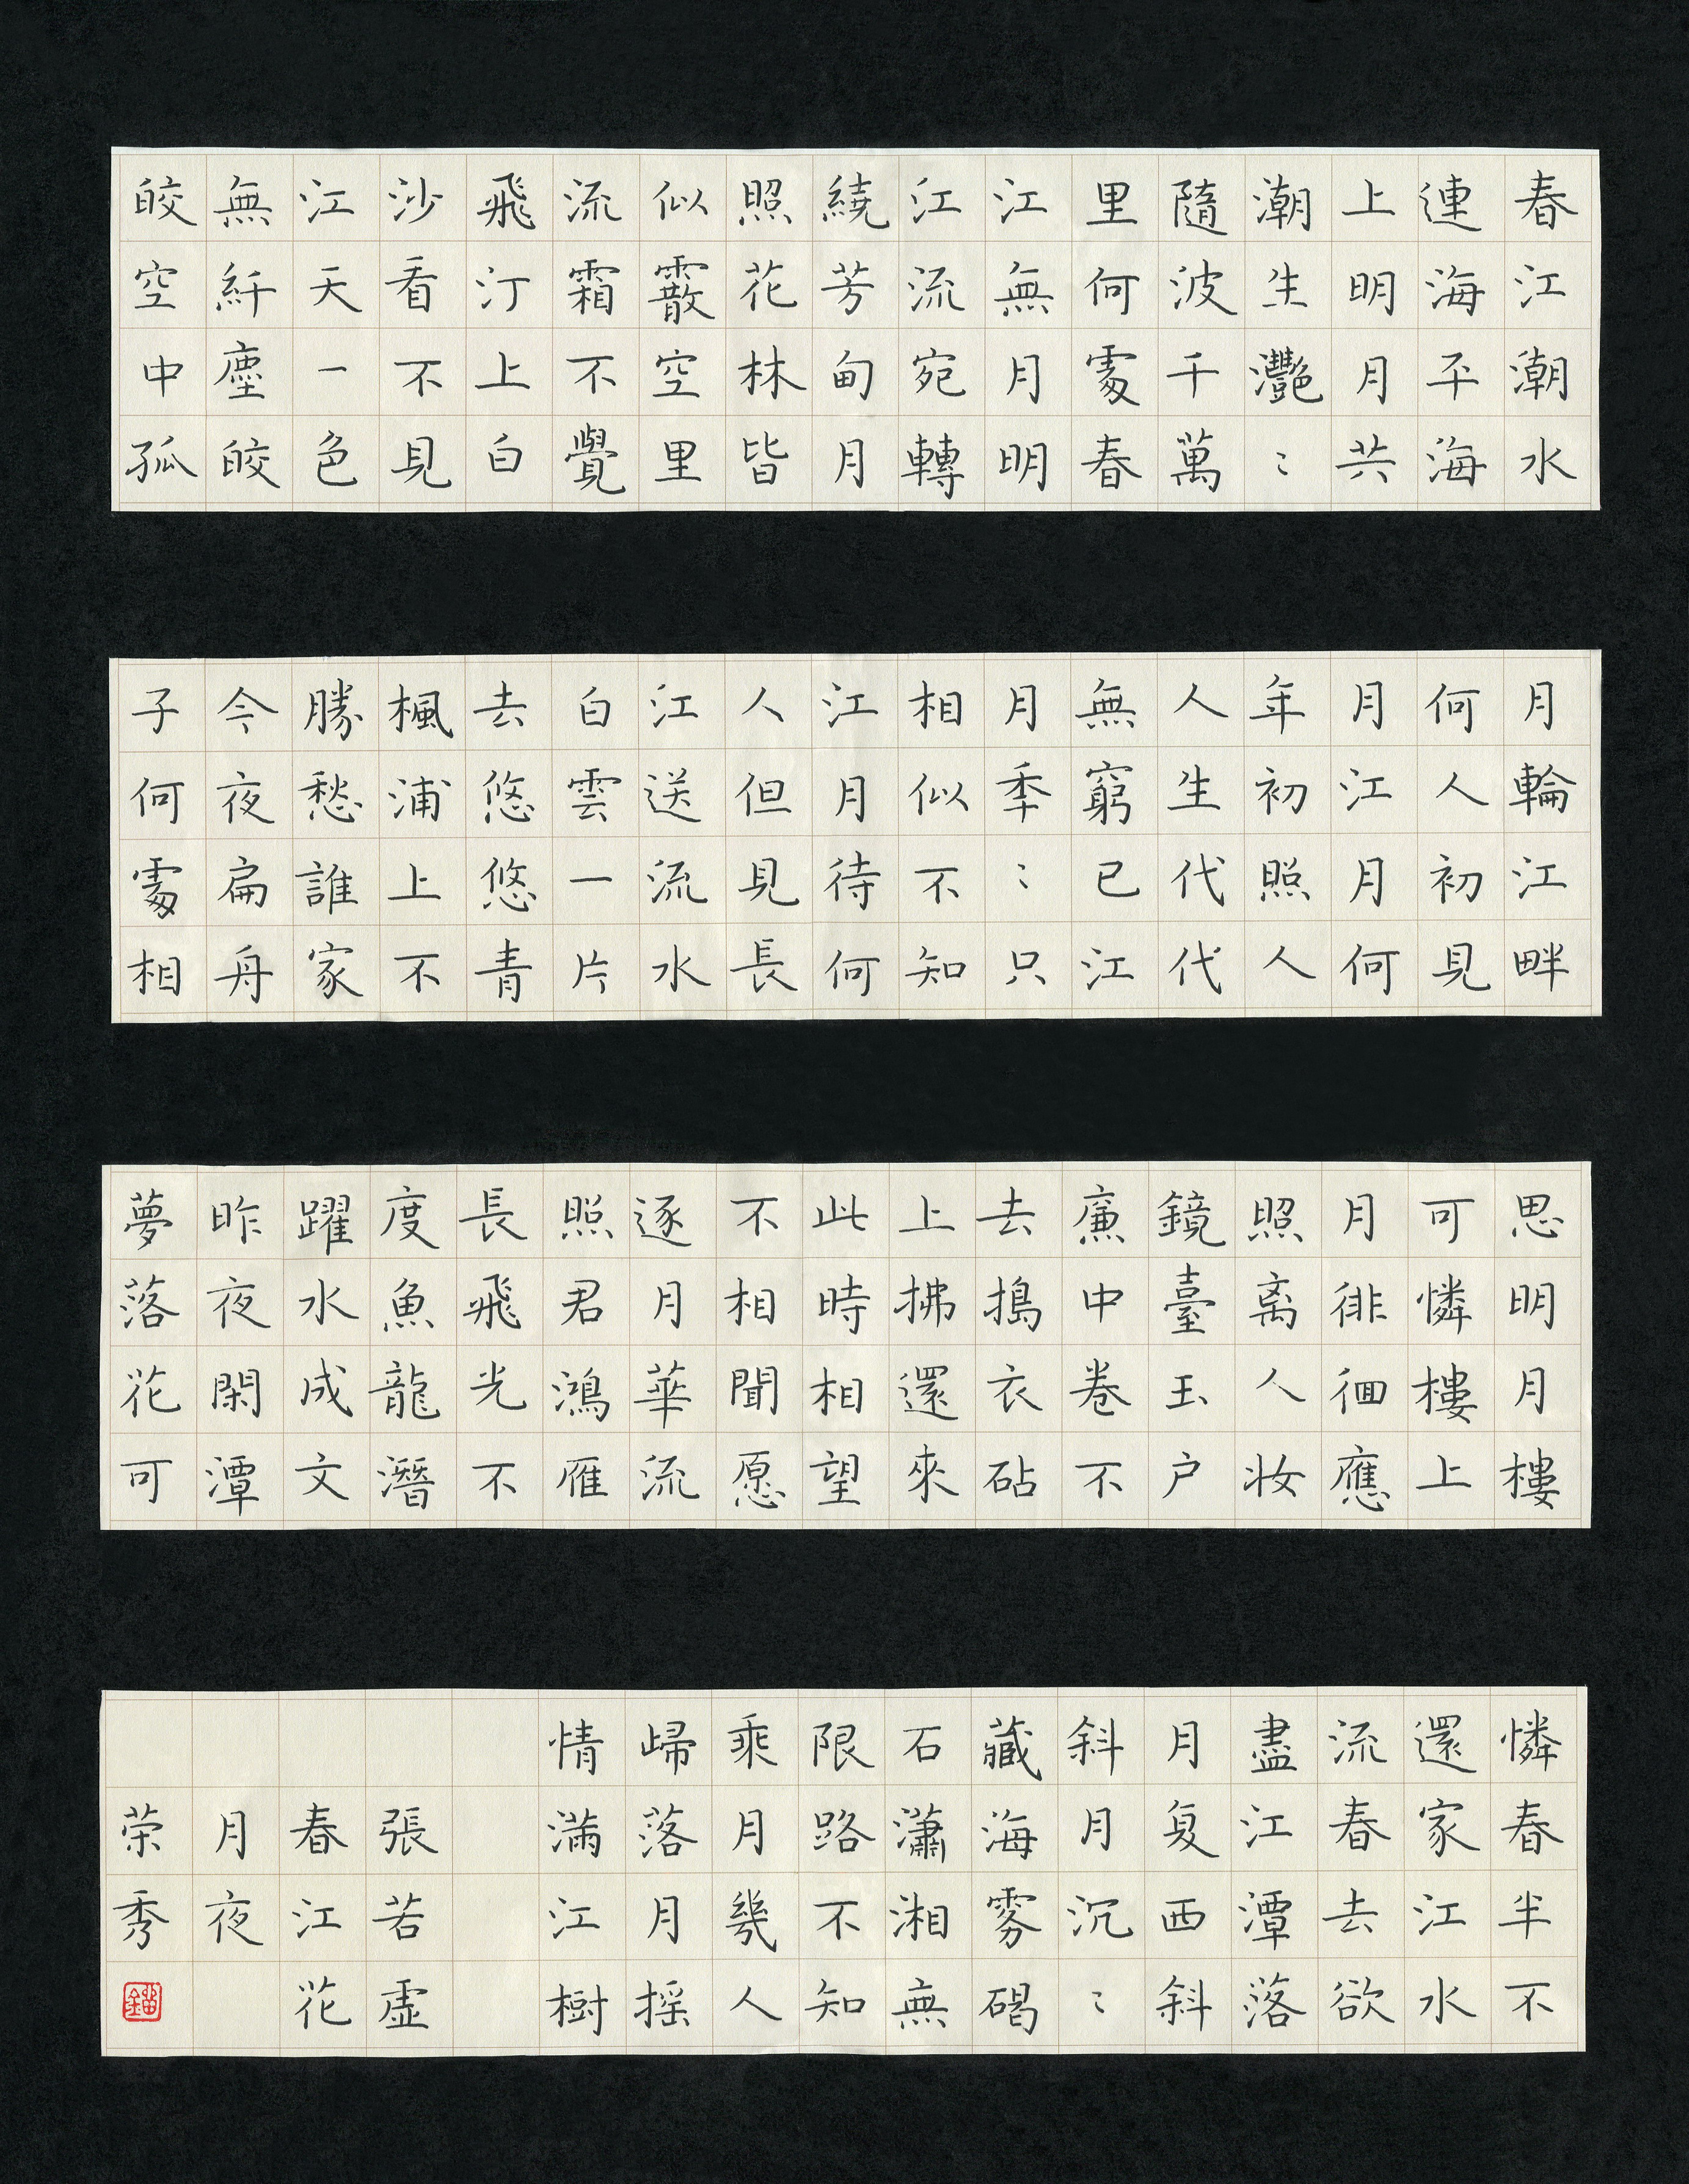 春江潮水
連海平海
上明月共
潮生灩〻
隨波千萬
里何處春
江無月明
江流宛轉
繞芳甸月
照花林皆
似霰空里
流霜不覺
飛汀上白
沙看不見
江天一色
無纤塵皎
皎空中孤
月輪江畔
何人初見
月江月何
年初照人
人生代代
無窮已江
月秊〻只
相似不知
江月待何
人但見長
江送流水
白雲一片
去悠悠青
楓浦上不
勝愁誰家
今夜扁舟
子何處相
思明月樓
可憐樓上
月徘徊應
照离人妆
鏡臺玉户
廉中卷不
去搗衣砧
上拂還來
此時相望
不相聞愿
逐月華流
照君鴻雁
長飛光不
度魚龍潛
躍水成文
昨夜閑潭
夢落花可
憐春半不
還家江水
流春去欲
盡江潭落
月复西斜
斜月沉〻
藏海雾碣
石瀟湘無
限路不知
乘月幾人
歸落月摇
情满江樹
張若虚
春江花
月夜
荣秀